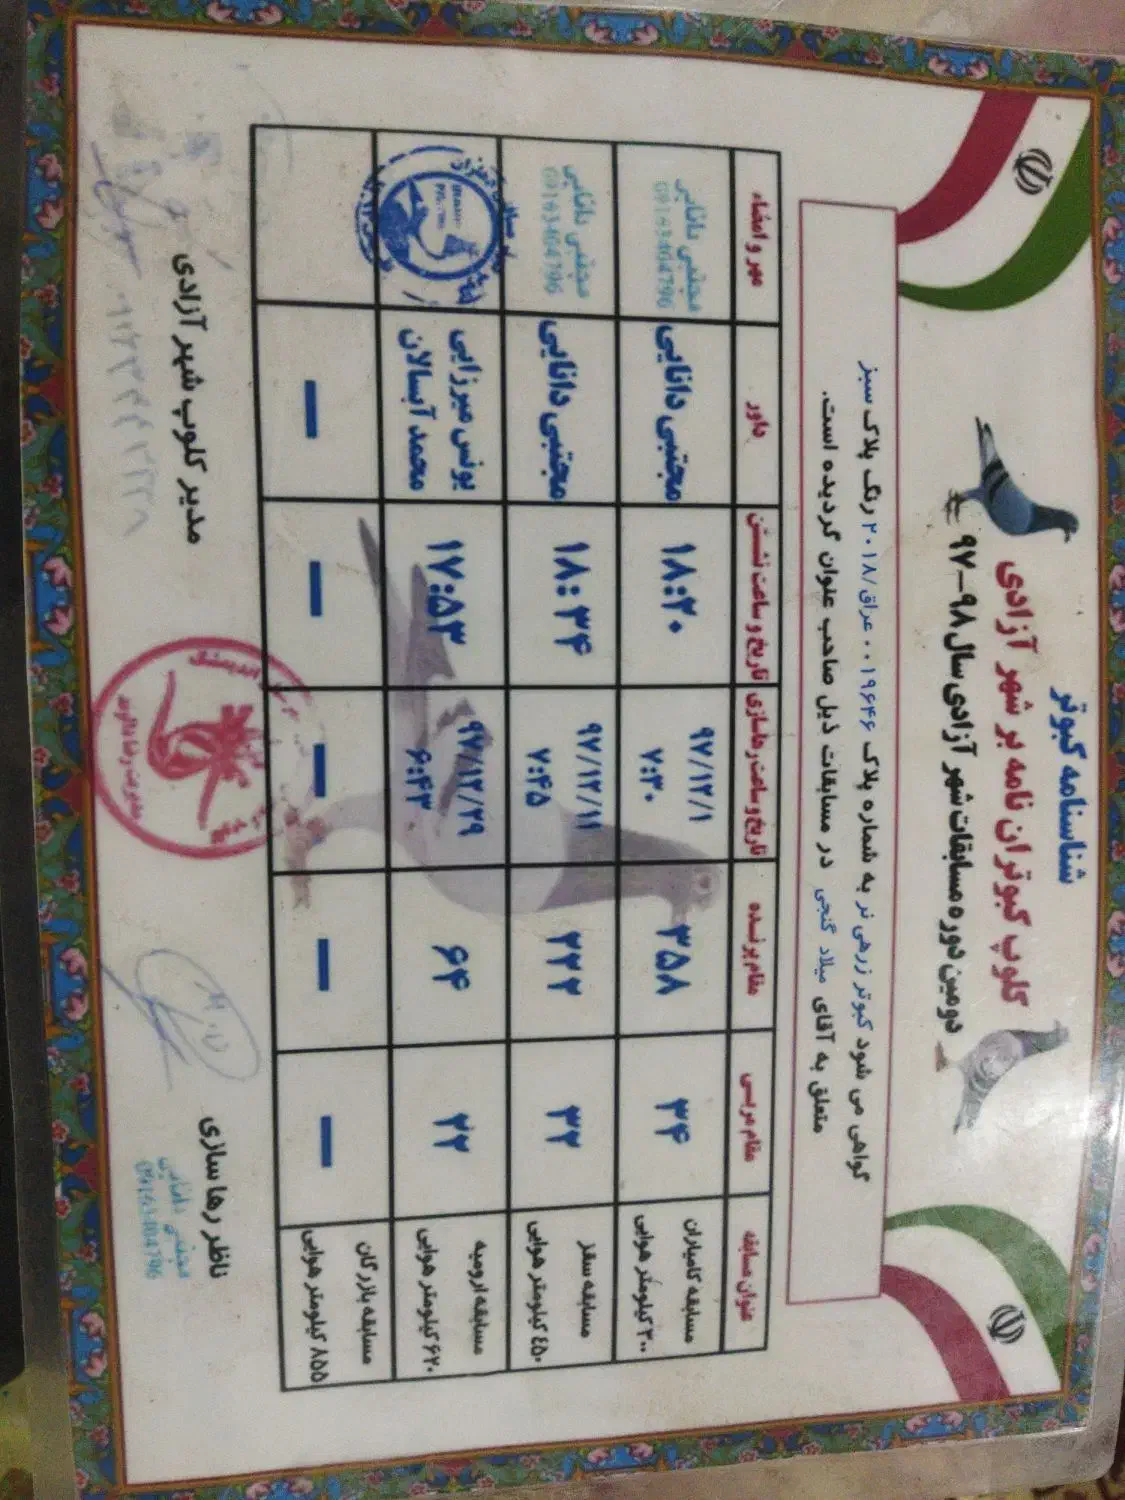 شناسنامه کبوتر
کلوپ کبوتران نامه بر شهر آزادی
دومین دوره مسابقات شهر آزادی سال ۹۸-۹۷
گواهی می شود کبوتر زرهی نر به شماره پلاک ۰۰۱۹۶۴۶ عراق/۲۰۱۸ رنگ پلاک سبز
متعلق به آقای میلاد گنجی در مسابقات ذیل صاحب عنوان گردیده است.
عنوان مسابقه مقام مربی مقام پرنده تاریخ و ساعت رهاسازی تاریخ و ساعت نشستن داور مهر و امضاء
مسابقه کامیاران
۳۰۰ کیلومتر هوایی
۳۴
۳۵۸
۹۷/۱۲/۱
۷:۳۰
۱۸:۲۰
مجتبی دانایی
مجتبی دانایی
09163404796
مسابقه سقز
۴۵۰ کیلومتر هوایی
۳۲
۲۲۲
۹۷/۱۲/۱۱
۷:۴۵
۱۸:۳۴
مجتبی دانایی
مجتبی دانایی
09163404796
مسابقه ارومیه
۶۲۰ کیلومتر هوایی
۲۲
۶۴
۹۷/۱۲/۲۹
۶:۴۳
۱۷:۵۳
یونس میرزایی
محمد آبسالان
مسابقه بازرگان
۸۵۵ کیلومتر هوایی
—
—
—
—
—
ناظر رها سازی
مجتبی دانایی
09163404796
مدیر کلوپ شهر آزادی